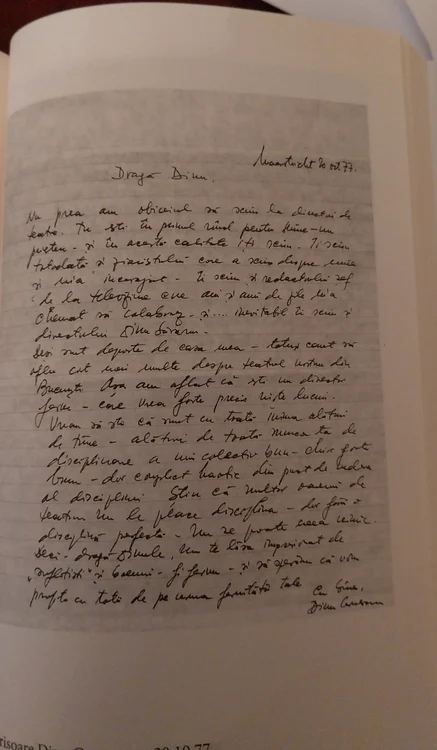 Maastricht 20 oct. 77.
Dragă Dinu,
Nu prea am obiceiul să scriu la directori de
teatre. Tu ești în primul rînd pentru mine - un
prieten - și în această calitate îți scriu. Îți scriu
totodată și ziaristului care a scris despre mine
și m-a încurajat - îți scriu și redactorului șef
de la televiziune care ani și ani de zile m-a
chemat să colaborez - și .... inevitabil îți scriu și
directorului Dinu Săraru.
Deși sunt departe de casa mea - totuși caut să
aflu cît mai multe despre teatrul nostru din
București. Așa am aflat că ești un director
ferm - care vrea foarte precis niște lucruri.
Vreau să știi că sunt cu toată inima alături
de tine - alături de toată munca ta de
disciplinare a unui colectiv bun - chiar foarte
bun - dar complect haotic din punct de vedere
al disciplinii. Știu că multor oameni de
teatru nu le place disciplina - dar fără o
disciplină perfectă - nu se poate crea nimic.
Deci - dragă Dinule, nu te lăsa impresionat de
și boemi - fi ferm - și să sperăm că vom
profita cu toții de pe urma fermității tale
Cu bine,
Dinu
20.10.77